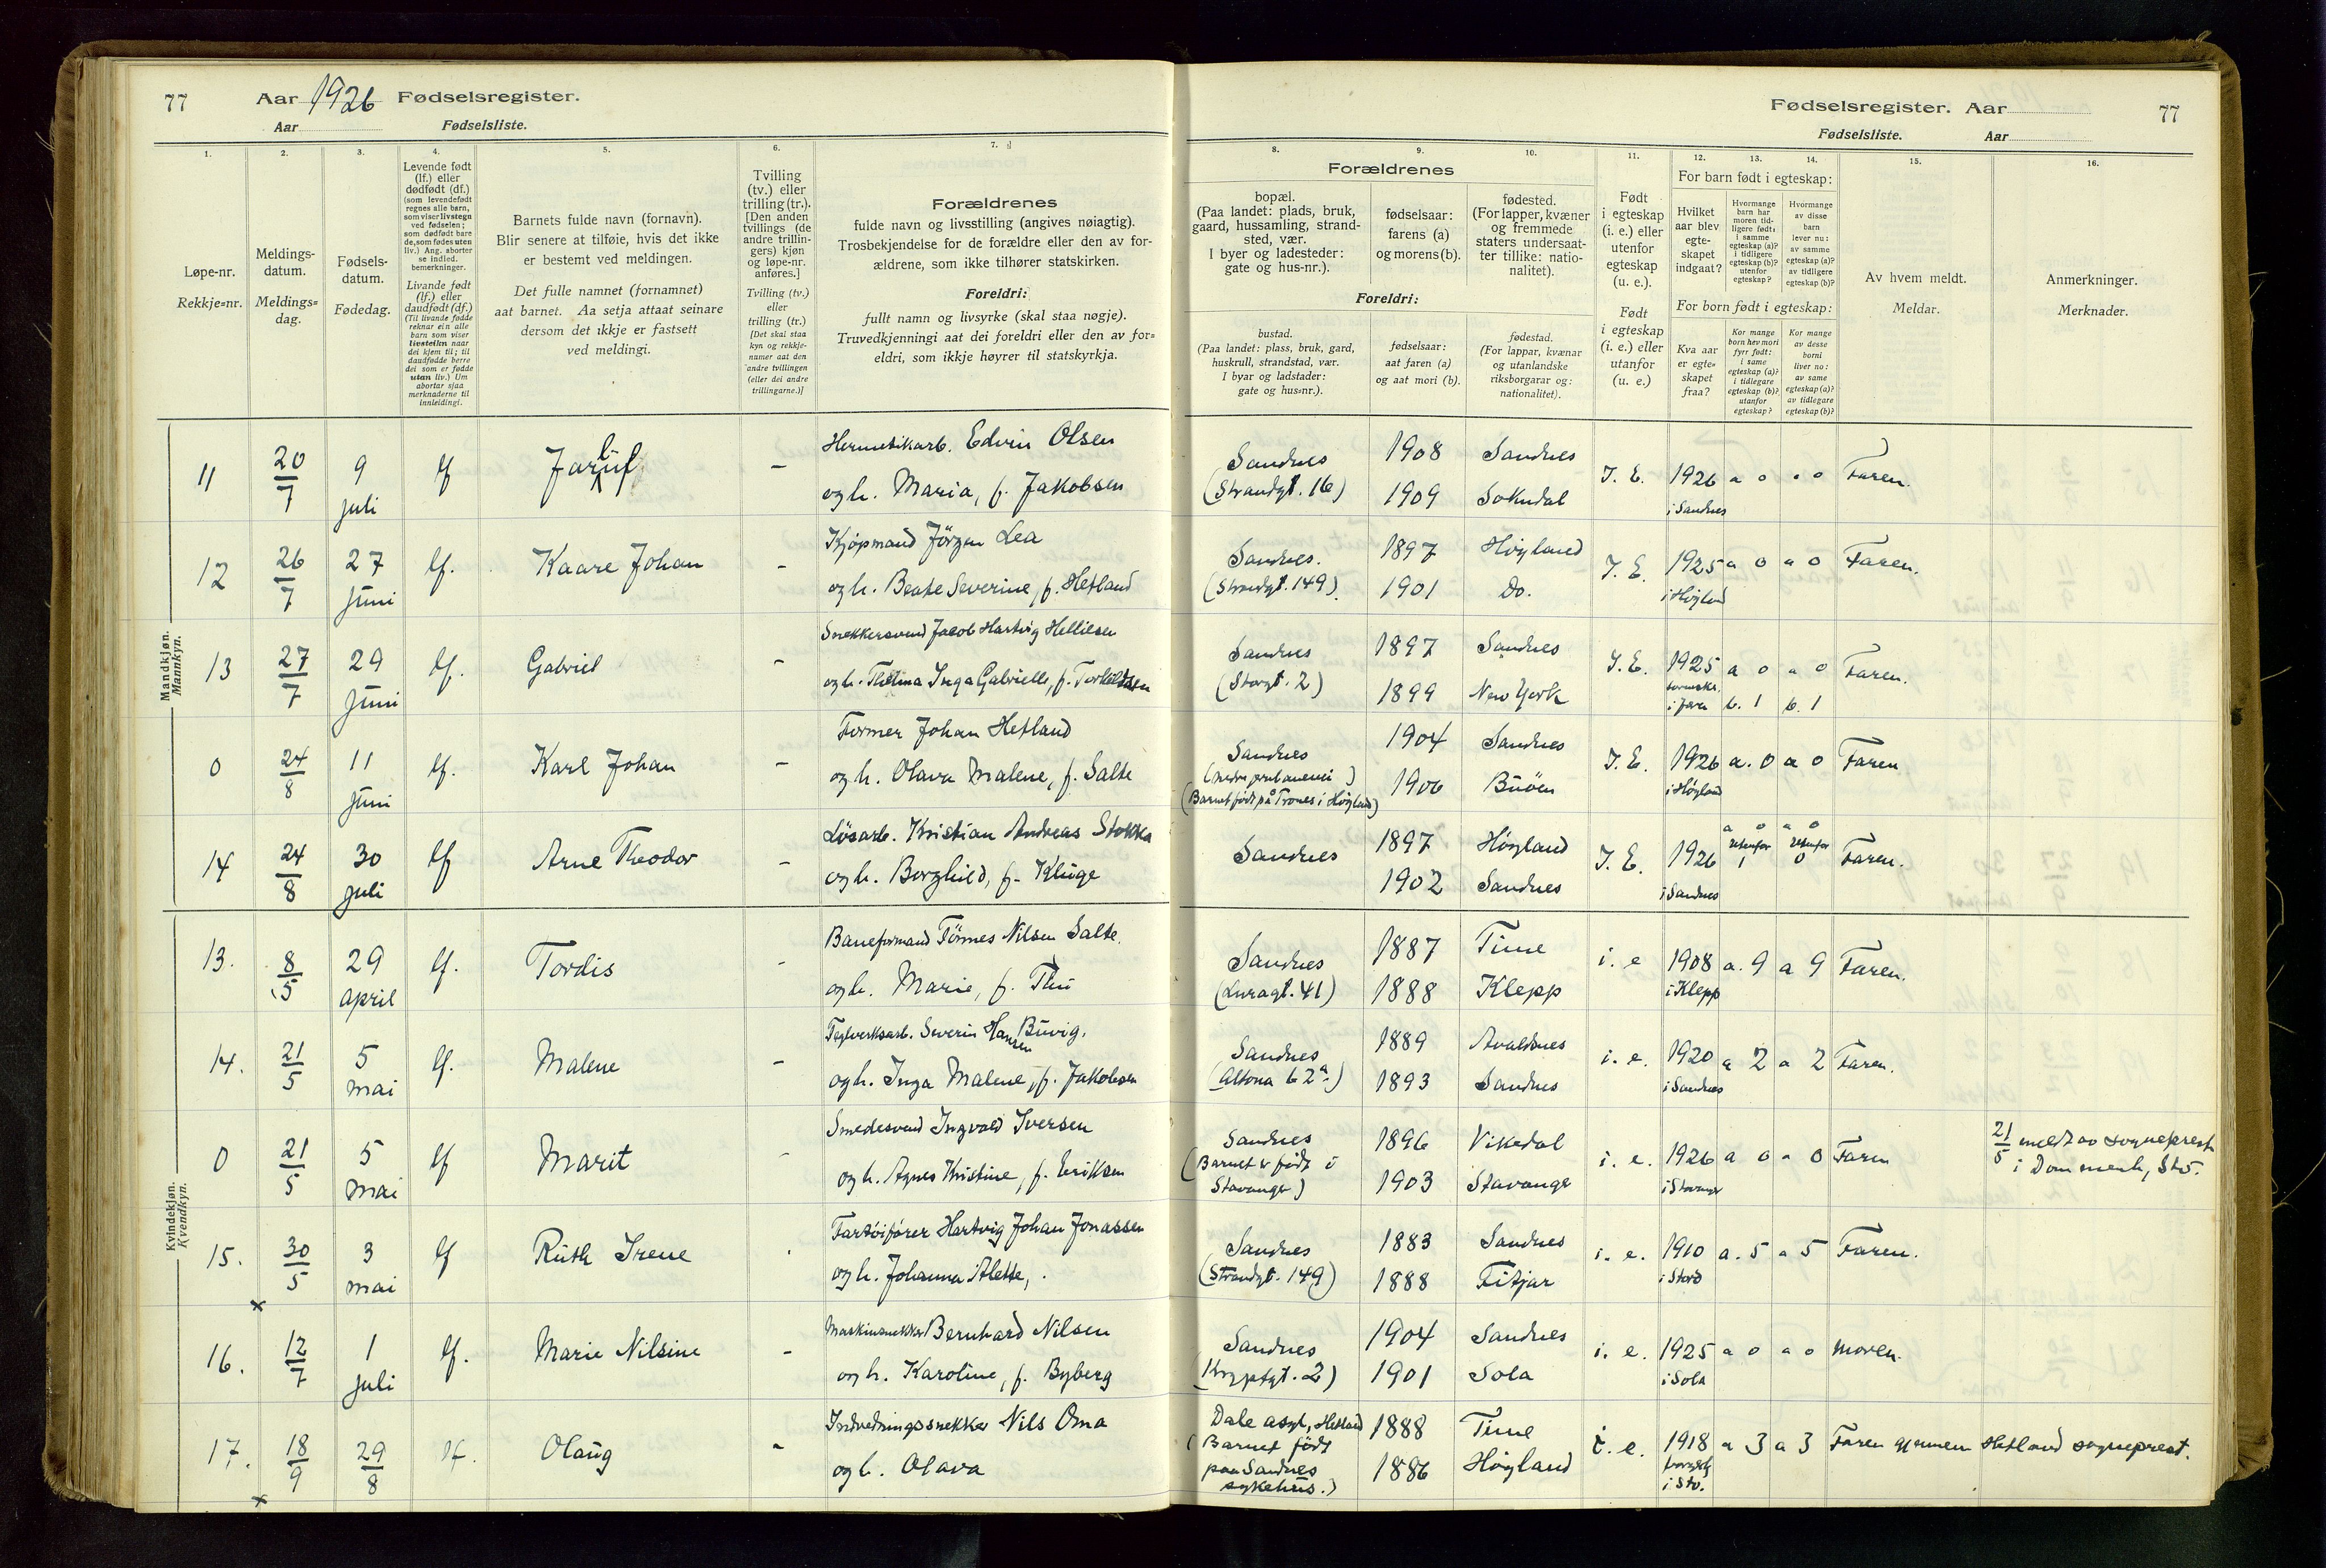 77 Aar 1926 Fødselsregister.
Aar Fødselsliste.
Fødselsregister. Aar 77
Fødselsliste. Aar
1. 2. 3. 4. 5. 6. 7.
Løpe-nr.
Rekkje=nr.
Meldings-
datum.
Meldings=
dag.
Fødsels-
datum.
Fødedag.
Levende født
(lf.) eller
dødfødt (df.)
(som levendefødt
regnes alle barn,
som viser livstegn
ved fødselen;
som dødfødt bare
de, som fødes uten
liv.) Ang. aborter
se indled.
bemerkninger.
Livande født
(lf.) eller
daudfødt (df.)
(Til livande fødde
reknar ein alle
born som viser
livsteikn naar
dei kjem til; til
daudfødde berre
dei som er fødde
utan liv.) Um
abortar sjaa
merknaderne til
innleidingi.
Barnets fulde navn (fornavn).
Blir senere at tilføie, hvis det ikke
er bestemt ved meldingen.
Det fulle namnet (fornamnet)
aat barnet. Aa setja attaat seinare
dersom det ikkje er fastsett
ved meldingi.
Tvilling
(tv.) eller
trilling (tr.).
[Den anden
tvillings (de
andre trillin-
gers) kjøn
og løpe-nr.
anføres.]
Tvilling (tv.)
eller
trilling (tr.)
[Det skal staa
kyn og rekkje-
numer aat den
andre tvillingen
(eller dei andre
trillingarne.)]
Forældrenes
fulde navn og livsstilling (angives nøiagtig).
Trosbekjendelse for de forældre eller den av for-
ældrene, som ikke tilhører statskirken.
Foreldri:
fullt namn og livsyrke (skal staa nøgje).
Truvedkjenningi aat dei foreldri eller den av for=
eldri, som ikkje høyrer til statskyrkja.
8. 9. 10. 11. 12. 13. 14. 15. 16.
Forældrenes
bopæl.
(Paa landet: plads, bruk,
gaard, hussamling, strand-
sted, vær.
I byer og ladesteder:
gate og hus-nr.).
fødselsaar:
farens (a)
og morens (b).
fødested.
(For lapper, kvæner
og fremmede
staters undersaat-
ter tillike: natio-
nalitet).
Foreldri:
bustad.
(Paa landet: plass, bruk, gard,
huskrull, strandstad, vær.
I byar og ladstader:
gate og hus=nr.).
fødselsaar:
aat faren (a)
og aat mori (b).
fødestad.
(For lappar, kvænar
og utanlandske
riksborgarar og:
nationalitet).
Født
i egteskap
(i. e.) eller
utenfor
egteskap
(u. e.).
Født
i egteskap
(i. e.) eller
utanfor
(u. e.)
For barn født i egteskap:
Hvilket
aar blev
egte-
skapet
indgaat?
Hvormange
barn har
moren tid-
ligere født:
i samme
egteskap (a)?
i tidligere
egteskap (b)?
utenfor
egteskap?
Hvormange
av disse
barn
lever nu:
av samme
egteskap (a)?
av tidligere
egteskap (b)?
For born født i egteskap:
Kva aar
er egte=
skapet
fraa?
Kor mange
born hev mori
fyrr født:
i same
egteskap (a)?
i tidlegare
egteskap (b)?
utanfor
egteskap?
Kor mange
av desse
borni
liver no:
av same
egteskap (a)?
av tidlegare
egteskap (b)?
Av hvem meldt.
Meldar.
Anmerkninger.
Merknader.
Mandkjøn.
Mannkyn.
11 20/7 9 juli lf – Hermetikarb. Edvin Olsen
og h. Maria, f. Jakobsen
Sandnes 1908 Sandnes I. E. 1926 a 0 a 0 Faren.
(Strandgt. 16) 1909 Sokndal i Sandnes
12 26/7 27 juni lf. Kaare Johan – Kjøpmand Jörgen Lea
og h. Beate Severine, f. Hetland
Sandnes. 1897 Høyland I. E. 1925 a 0 a 0 Faren.
(Strandgt. 149) 1901 Do. i Høyland
13 27/7 29 juni lf. Gabriel – Snekkersvend Jacob Hartvig Hellilsen
og h. Thelma Inga Gabrielle, f. Torkildsen
Sandnes 1897 Sandnes I. E. 1925 a 0 a 0 Faren.
(Storgt. 2) 1899 New York b. 1 b. 1
0 24/8 11 juni lf. Karl Johan – Former Johan Hetland
og h. Olava Malene, f. Salte
Sandnes 1904 Sandnes I. E. 1926 a. 0 a 0 Faren
(Barnet født på Trones i Høyland) 1906 Buöen i Høyland
14 24/8 30 juli lf Arne Theodor – Lösarb. Kristian Andreas Stokka
og h. Borghild, f. Kluge
Sandnes 1897 Høyland I. E. 1926 a 0 utenfor 1 a 0 utenfor 0 Faren.
1902 Sandnes i Sandnes
Kvindekjøn.
Kvendkyn.
13. 8/5 29 april lf. Tordis - Baneformand Tönnes Nilsen Salte.
og h. Marie, f. Thu
Sandnes 1887 Time i. e 1908 a. 9 a 9 Faren.
(Luragt. 41) 1888 Klepp i Klepp
14. 21/5 5 mai lf. Malene – Teglverksarb. Severin Hansen Buvig.
og h. Inga Malene, f. Jakobsen
Sandnes 1889 Avaldsnes i. e. 1920 a 2 a 2 Faren.
(Altona 62a) 1893 Sandnes i Sandnes
0 21/5 5 mai lf Marit - Smedesvend Ingvald Iversen
og h. Agnes Kristine, f. Eriksen
Sandnes 1896 Vikedal i. e. 1926 a 0 a 0 Faren 21/5 meldt av sogneprest
(Barnet er født i i Dom menh, Stv.
Stavanger) 1903 Stavanger i Stavanger
15. 30/5 3 mai lf Ruth Irene Fartöifører Hartvig Johan Jonassen
og h. Johanna Alette,
Sandnes 1883 Sandnes i. e. 1910 a. 5 a 5 Faren.
(Strandgt. 149) 1888 Fitjar i Stord
x
16. 12/7 1 juli lf. Marie Nilsine – Maskinsnekker Bernhard Nilsen
og h. Karoline, f. Byberg
Sandnes 1904 Sandnes i. e. 1925 a 0 a 0 moren.
2) 1901 Sola i Sola
17. 18/9 29/8 lf. Olaug - Indredningssnekker Nils Oma
og h. Olava
Dale asyl, Hetland 1888 Time i. e. 1918 a 3 a 3 Faren gjennem Hetland sogneprest.
(Barnet født
paa Sandnes 1886 Høyland
sykehus.) i Stv.
x